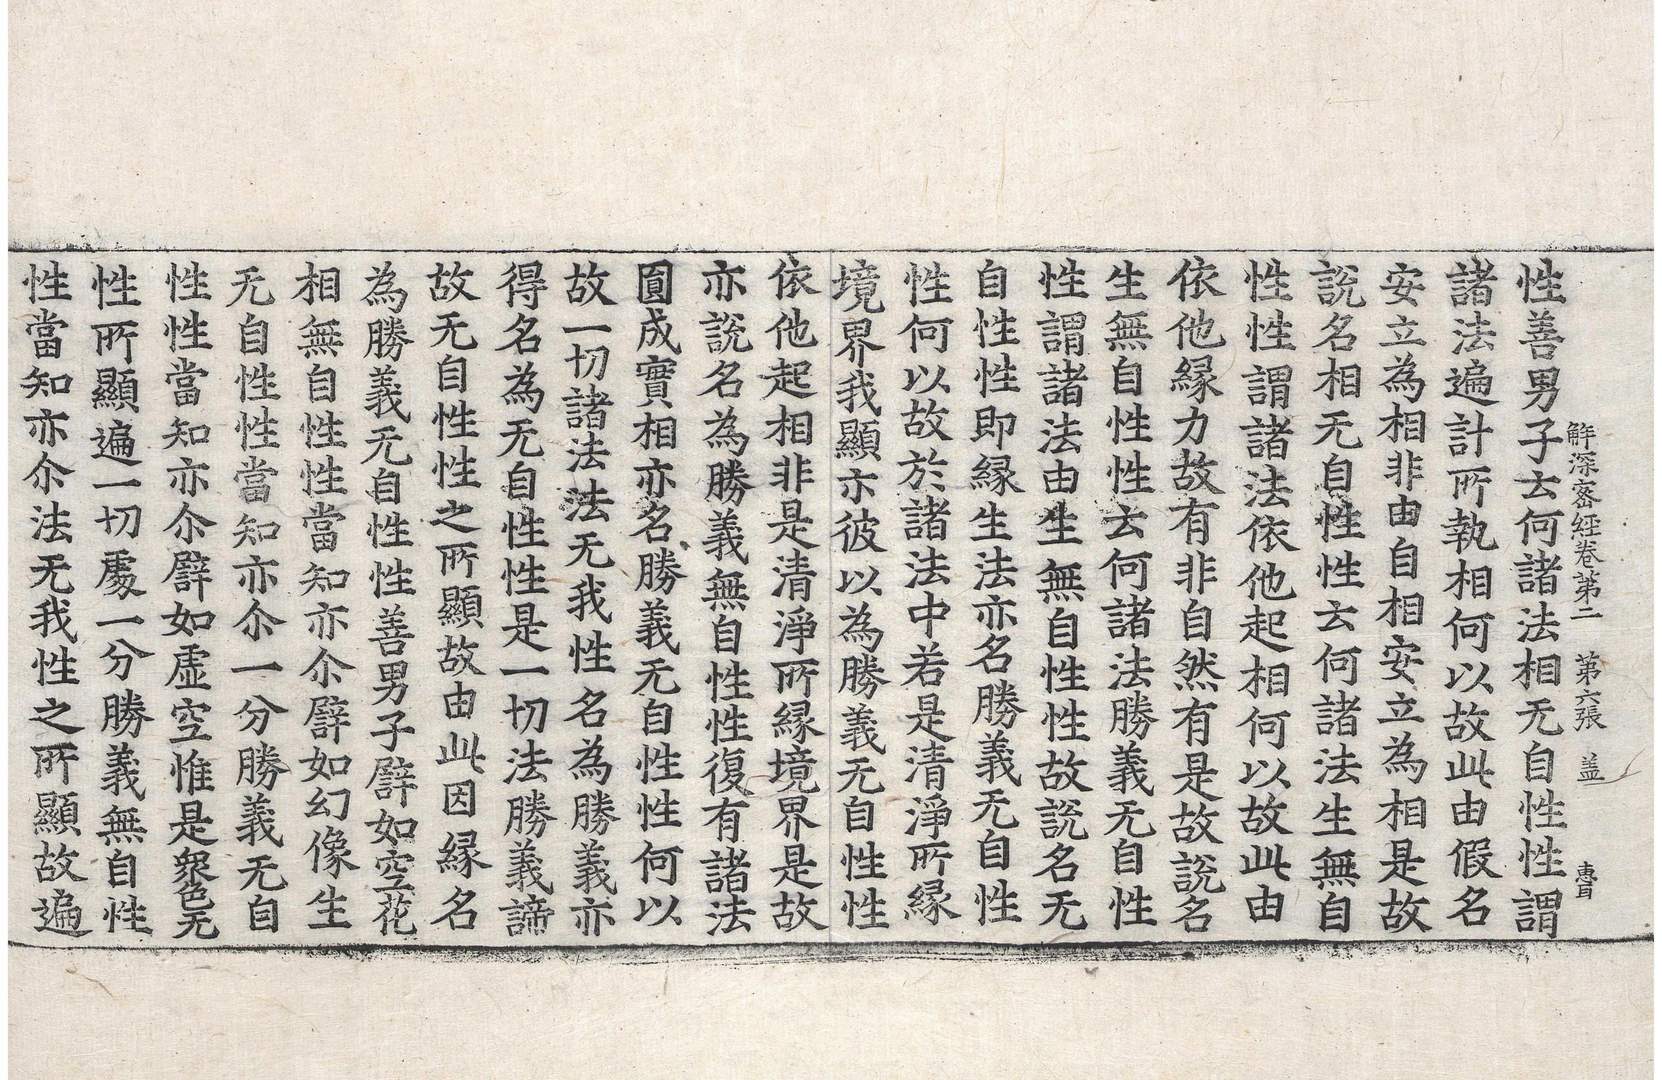 觧深密経卷第二 第六張 盖 惠
性善男子云何諸法相无自性性謂
諸法遍計所執相何以故此由假名
安立為相非由自相安立為相是故
說名相无自性性云何諸法生無自
性性謂諸法依他起相何以故此由
依他縁力故有非自然有是故說名
生無自性性云何諸法勝義无自性
性謂諸法由生無自性性故說名无
自性性即縁生法亦名勝義无自性
性何以故於諸法中若是清淨所縁
境界我顯亦彼以為勝義无自性性
依他起相非是清淨所縁境界是故
亦說名為勝義無自性性復有諸法
圓成實相亦名勝義无自性性何以
故一切諸法法无我性名為勝義亦
得名為无自性性是一切法勝義諦
故无自性性之所顯故由此因縁名
為勝義无自性性善男子譬如空花
相無自性性當知亦尒譬如幻像生
无自性性當知亦尒一分勝義无自
性性當知亦尒譬如虛空惟是衆色无
性所顯遍一切處一分勝義無自性
性當知亦尒法无我性之所顯故遍